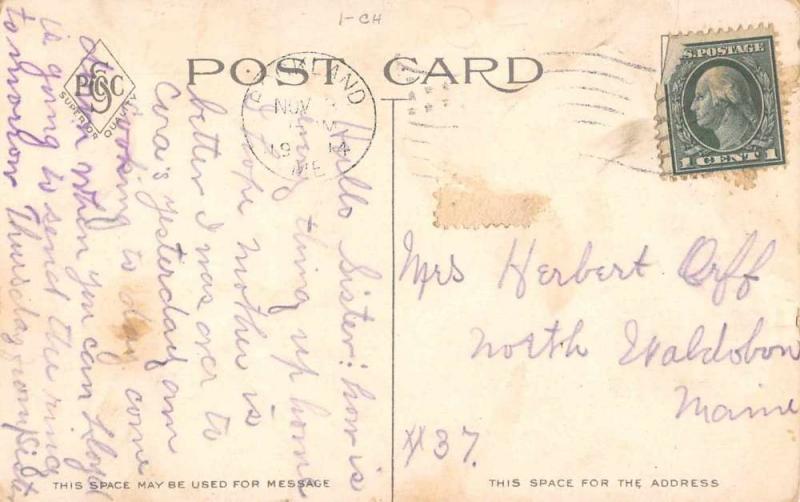 1-CH
POST CARD
PCSC
SUPERIOR QUALITY
LAND
NOV
19 14
ME
U.S. POSTAGE
1 CENT 1
Hello Sister: how is
every thing up home
I hope mother is
better I was over to
Cora's yesterday am
looking to day come
down when you can Lloyd
is going to send the ring
tomorrow Thursday from
Mrs Herbert Orff
North Waldobon
Maine
#37.
THIS SPACE MAY BE USED FOR MESSAGE
THIS SPACE FOR THE ADDRESS